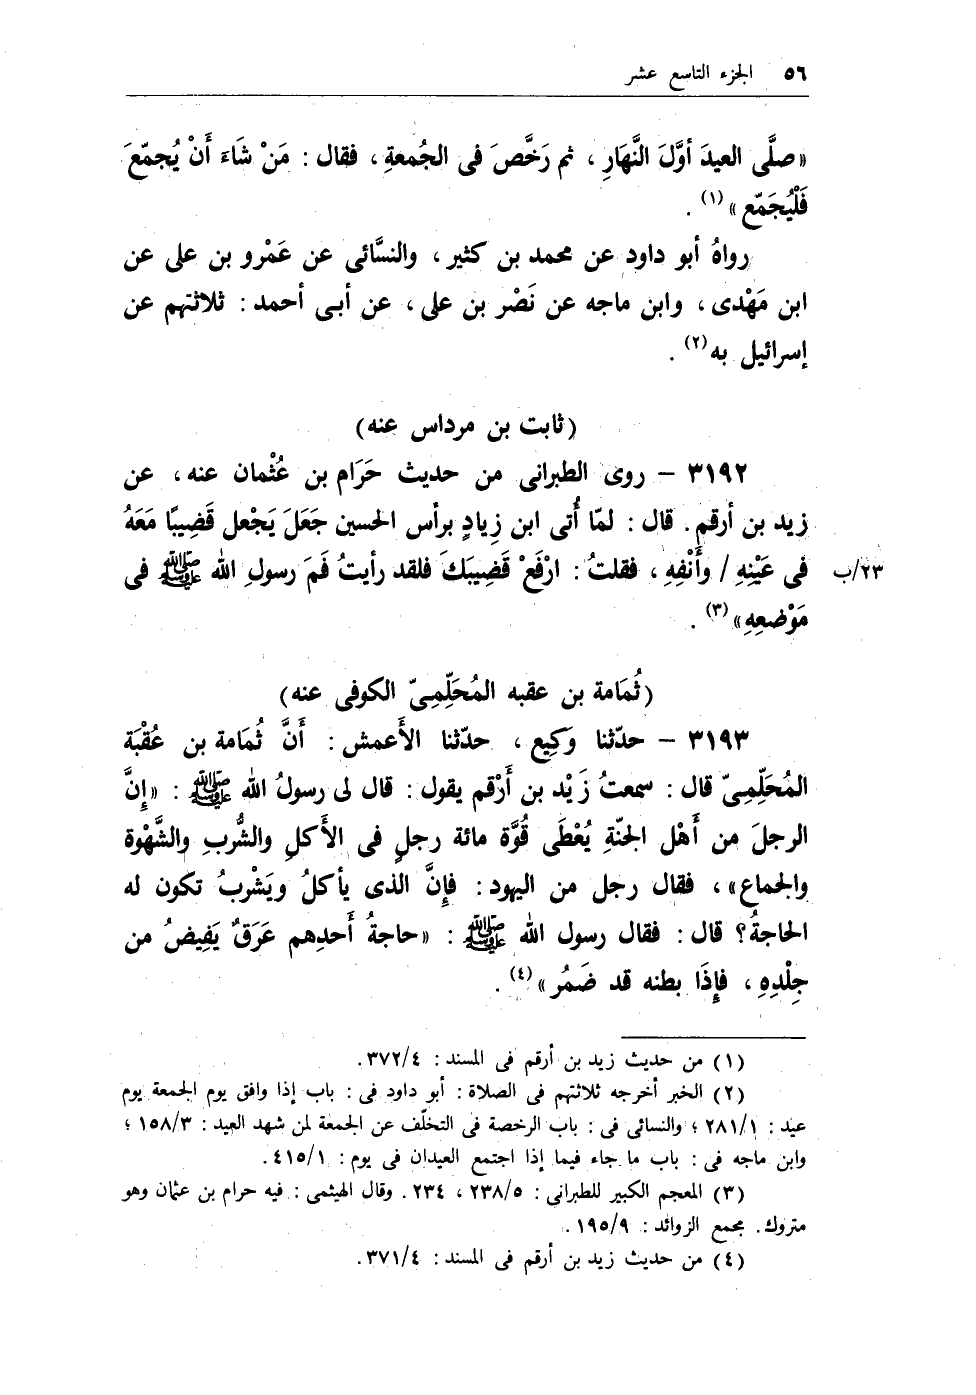 ٥٦ الجزء التاسع عشر
«صلَّى العيدَ أوَّلَ النَّهَارِ ، ثم رَخَّصَ فى الجُمعةِ ، فقال : مَنْ شَاءَ أَنْ يُجمّعَ
فَلْيُجَمّع»(١) .
رواهُ أبو داود عن محمد بن كثير ، والنسَّائى عن عَمْرو بن على عن
ابن مَهْدى ، وابن ماجه عن نَصْر بن على ، عن أبى أحمد : ثلاثتهم عن
إسرائيل به(٢) .
(ثابت بن مرداس عنه)
٣١٩٢ – روى الطبرانى من حديث حَرَام بن عُثْمان عنه ، عن
زيد بن أرقم . قال : لمّا أُتى ابن زِيادٍ برأس الحسين جَعَلَ يَجْعل قَضِيبًا مَعَهُ
فى عَيْنِهِ / وأَنْفِهِ ، فقلتُ : ارْفَعْ قَضِيبَكَ فلقد رأيتُ فَمَ رسولِ الله ﷺ فى
٢٣/ب
مَوْضعِهِ»(٣) .
(ثُمَامة بن عقبه المُحَلِّمِىّ الكوفى عنه)
٣١٩٣ – حدّثنا وَكِيع ، حدّثنا الأَعمش : أَنَّ ثُمَامة بن عُقْبَة
المُحَلِّمِىّ قال : سمعتُ زَيْد بن أَرْقم يقول : قال لى رسولُ الله ﷺ : «إِنَّ
الرجلَ من أَهْل الجنّةِ يُعْطَى قُوَّة مائة رجلٍ فى الأَكلِ والشُّربِ والشَّهْوة
والجماع» ، فقال رجل من اليهود : فإِنَّ الذى يأكلُ ويَشْربُ تكون له
الحاجةُ؟ قال : فقال رسول الله ﷺ : «حاجةُ أَحدِهم عَرَقٌ يَفِيضُ من
جِلْدِهِ ، فإِذَا بطنه قد ضَمُر»(٤) .
(١) من حديث زيد بن أرقم فى المسند : ٣٧٢/٤ .
(٢) الخبر أخرجه ثلاثتهم فى الصلاة : أبو داود فى : باب إذا وافق يوم الجمعة يوم
عيد : ٢٨١/١ ؛ والنسائى فى : باب الرخصة فى التخلّف عن الجمعة لمن شهد العيد : ١٥٨/٣ ؛
وابن ماجه فى : باب ما جاء فيما إذا اجتمع العيدان فى يوم : ٤١٥/١ .
(٣) المعجم الكبير للطبرانى : ٢٣٨/٥ ، ٢٣٤ . وقال الهيثمى : فيه حرام بن عثمان وهو
متروك . مجمع الزوائد : ١٩٥/٩ .
(٤) من حديث زيد بن أرقم فى المسند : ٣٧١/٤ .